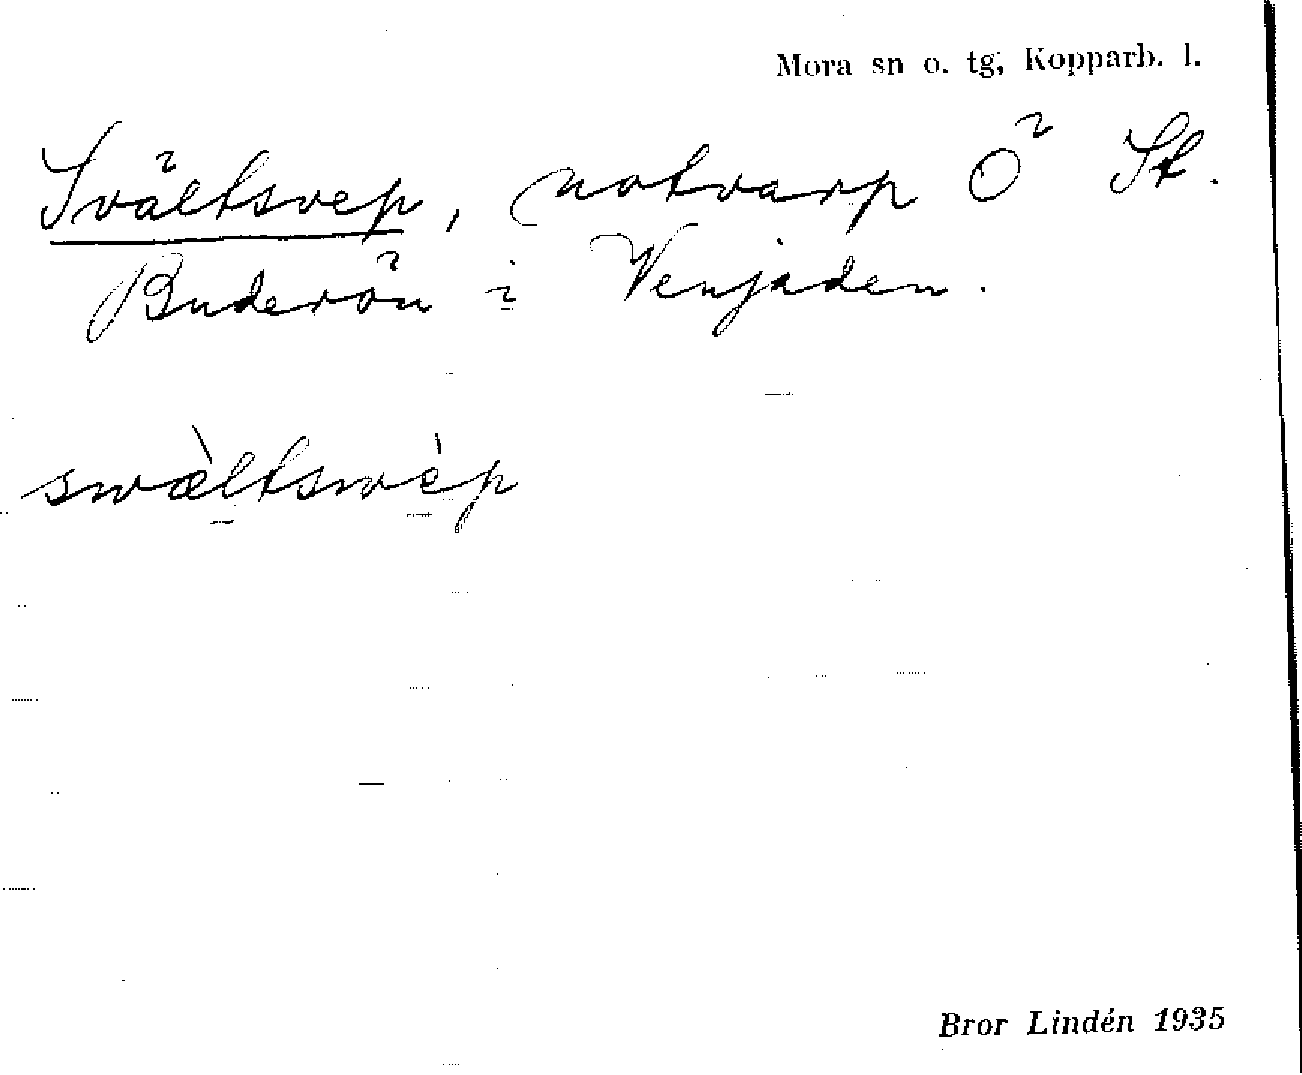 Mora sn o. tg, Kopparb. l.
Svältsvep, notvarp Ö St.
Buderön i Venjaden.
swæ̀ltswèp
Bror Lindén 1935